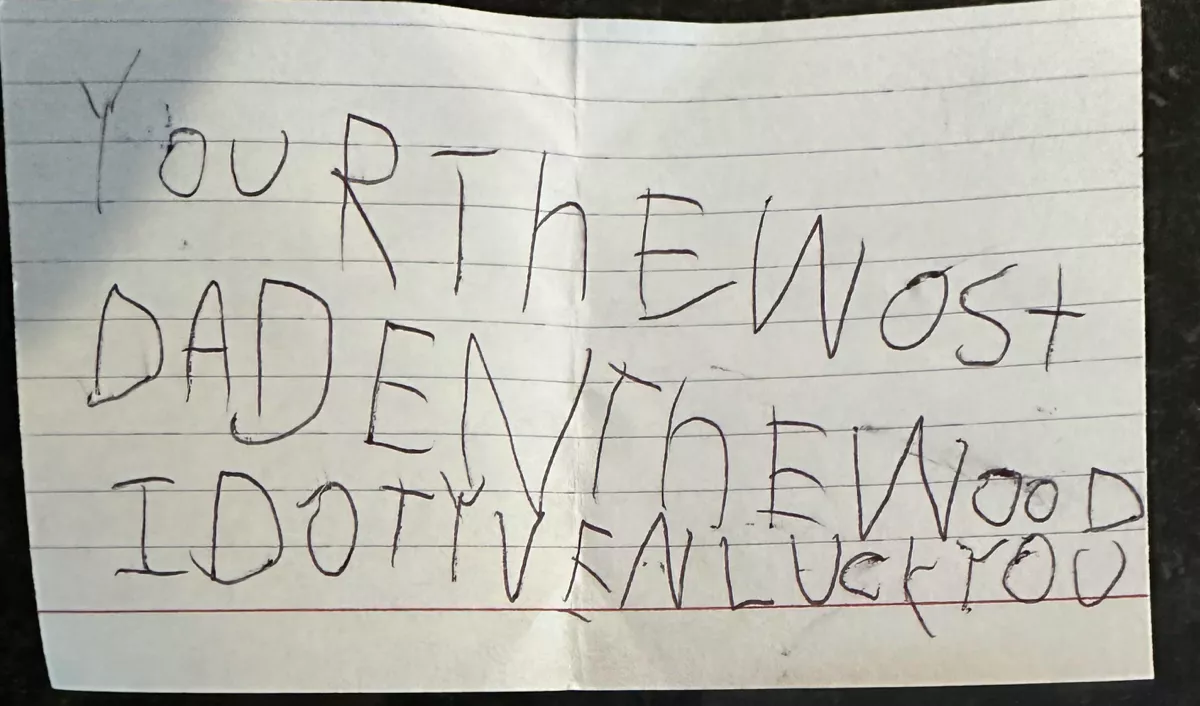 YOU R ThE WOSt
DAD EN ThE WOOD
I DOTY VEN LUCK YOU